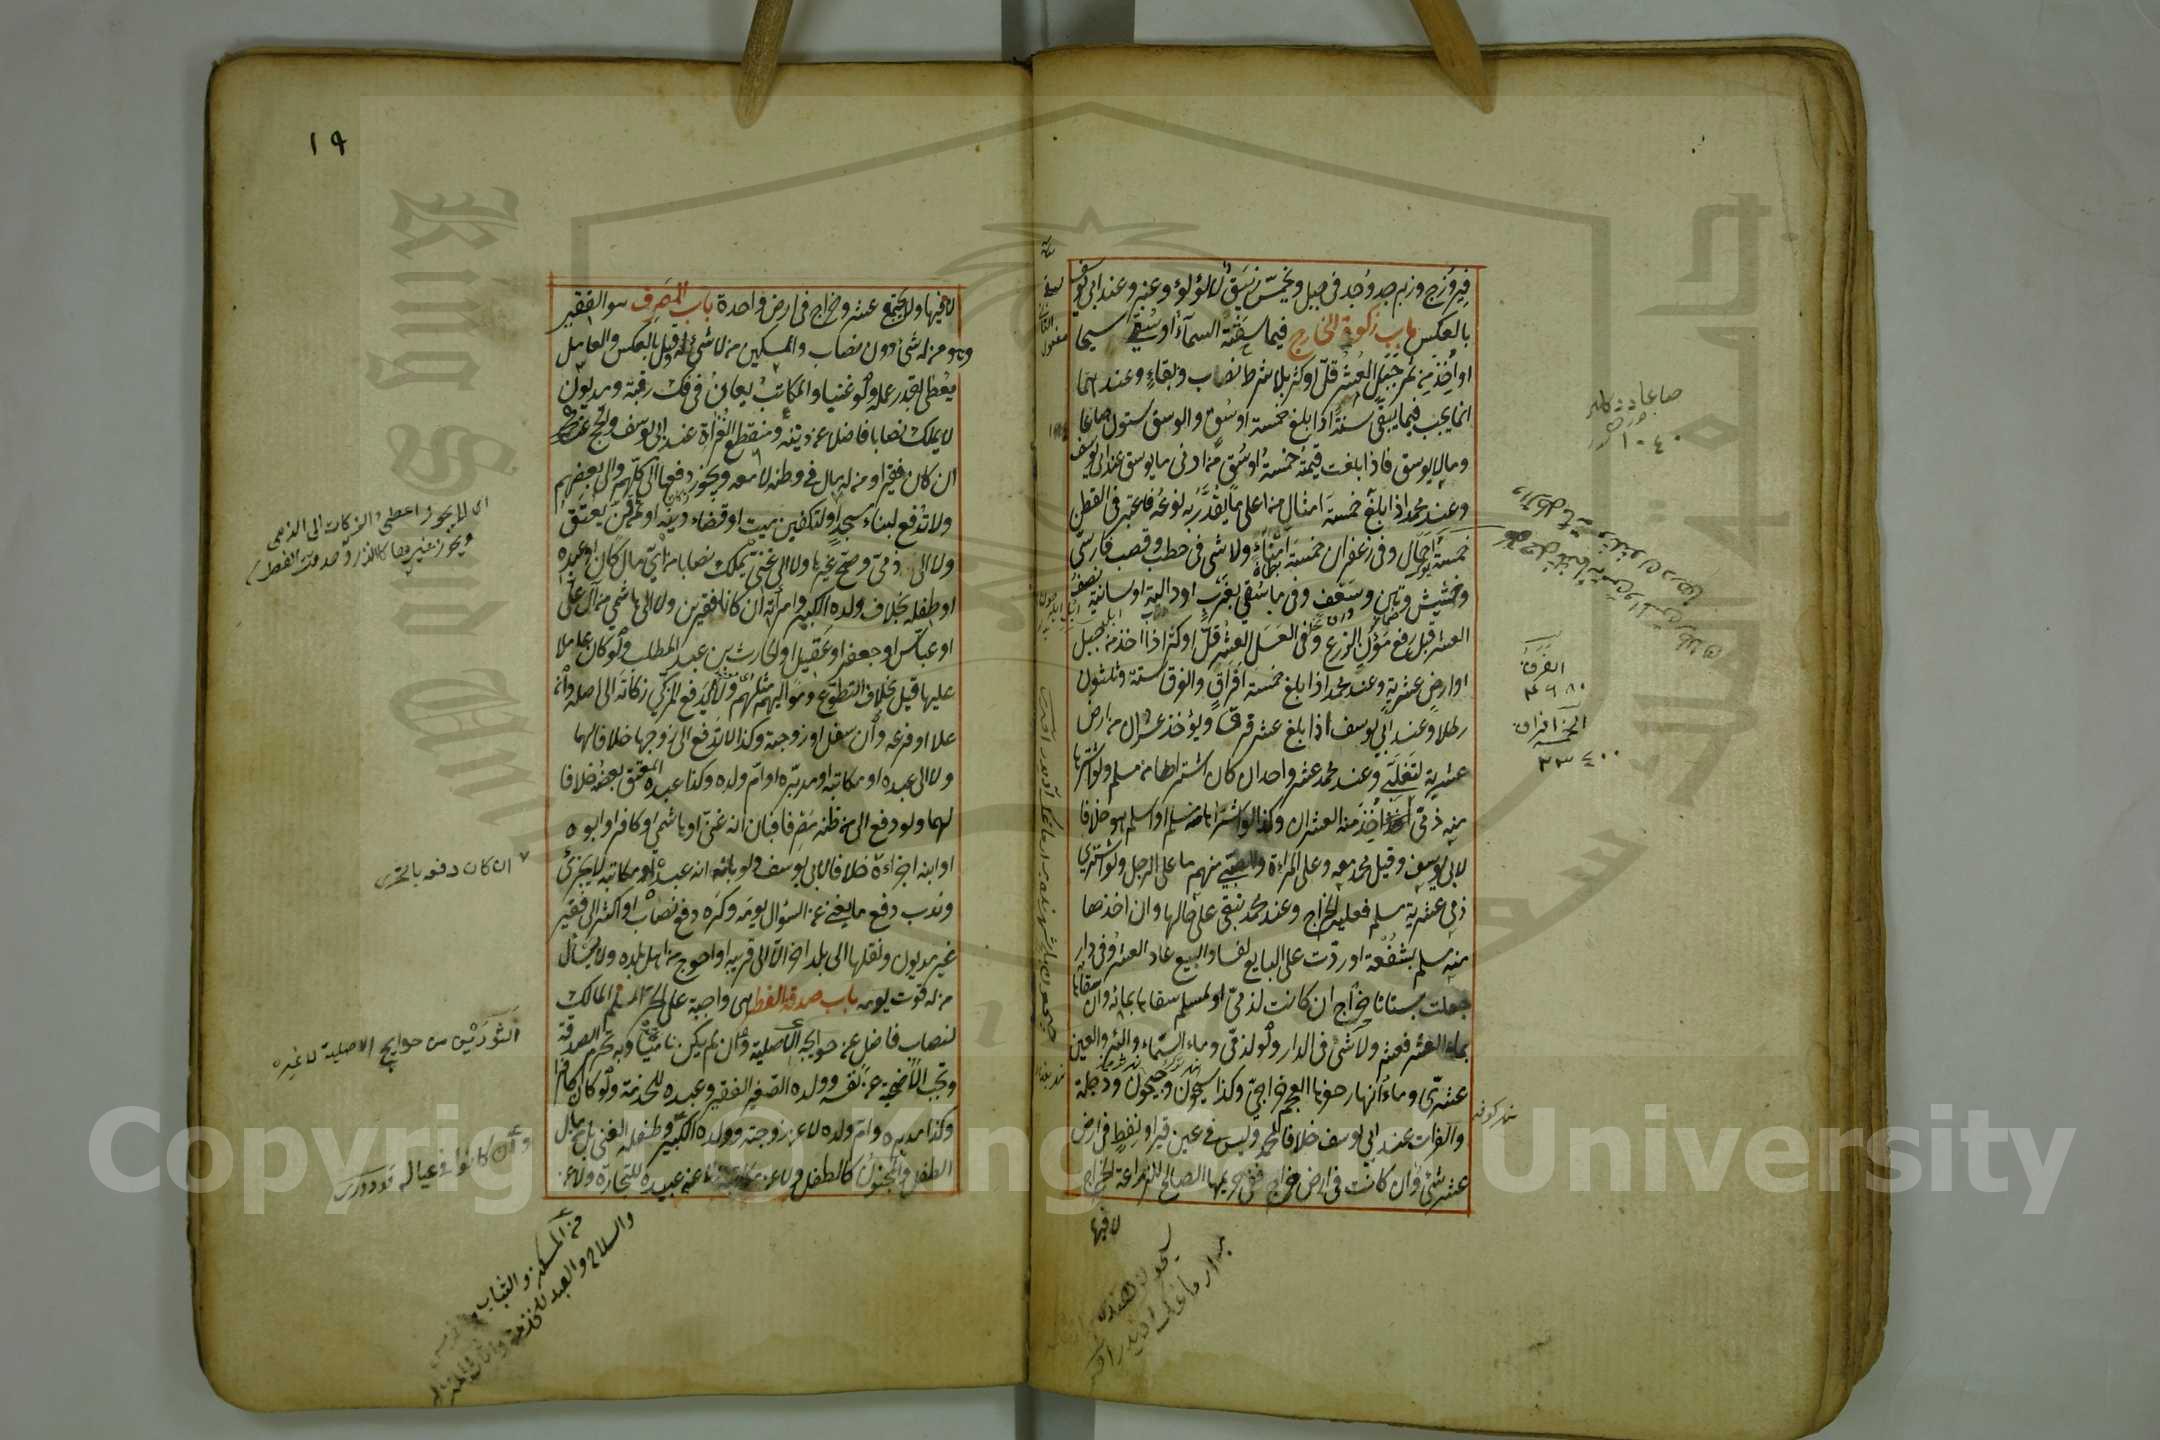 فيروزج وزبرجد وجد في جبل ويخمس زيبق لا لؤلؤ وعنبر وعند ابي يوسف
بالعكس باب زكوة الخارج فيما سقته السماء او سقى سيحا
او اخذ من ثمر جبل العشر قل او كثر بلا شرط نصاب وبقاء وعندهما
انما يجب فيما يبقى سنة اذا بلغ خمسة اوسق والوسق ستون صاعا
وما لا يوسق فاذا بلغت قيمته خمسة اوسق من ادنى ما يوسق عند ابي يوسف
وعند محمد اذا بلغ خمسة امثال من اعلى ما يقدر به نوعه فاعتبر في القطن
خمسة احمال وفي زعفران خمسة امناء ولا شئ في حطب وقصب فارسي
وحشيش وتبن وسعف وفي ما سقي بغرب او دالية او سانية نصف
العشر قبل رفع مؤن الزرع وفي العسل العشر قل او كثر اذا اخذ من جبل
او ارض عشرية وعند محمد اذا بلغ خمسة افراق والفرق ستة وثلثون
رطلا وعند ابي يوسف اذا بلغ عشر قرب ويؤخذ عشران من ارض
عشرية لتغلبي وعند محمد عشر واحد ان كان اشتراها من مسلم ولو اشتراها
منه ذمي اخذ منه العشران وكذا لو اشتراها منه مسلم او اسلم هو خلافا
لابي يوسف وقيل محمد معه وعلى المراءة والصبي منهم ما على الرجل ولو اشترى
ذمي عشرية مسلم فعليه الخراج وعند محمد تبقى على حالها وان اخذها
منه مسلم بشفعة او ردت على البايع لفساد البيع عاد العشر وفي دار
جعلت بستانا خراج ان كانت لذمي او لمسلم سقاها بمائه وان سقاها
بماء العشر فعشر ولا شئ في الدار ولو لذمي وماء السماء والبئر والعين
عشري وماء انهار حفرها العجم خراجي وكذا سيحون وجيحون ودجلة
والفرات عند ابي يوسف خلافا لمحمد وليس في عين قير او نفط في ارض
عشر شئ وان كانت في ارض خراج ففي حريمها الصالح للزراعة الخراج
لا فيها
الفرق
الخمسة افراق
٣٣٤٠٠
١٠٤٠
نهر كوفه
١٩
لا فيها ولا يجتمع عشر وخراج في ارض واحدة باب المصرف هو الفقير
وهو من له شئ دون نصاب والمسكين من لا شئ له وقيل بالعكس والعامل
يعطى بقدر عمله ولو غنيا والمكاتب يعان في فك رقبة ومديون
لا يملك نصابا فاضلا عن دينه ومنقطع الغزاة عند ابي يوسف والحج عند محمد
ان كان فقيرا ومن له مال في وطنه لا معه ويجوز دفعها الى كلهم والى بعضهم
ولا تدفع لبناء مسجد او لتكفين ميت او قضاء دينه او ثمن قن يعتق
ولا الى ذمي وصح غيرها ولا الى غني يملك نصابا من اي مال كان او عبده
او طفله بخلاف ولده الكبير وامرأته ان كانا فقيرين ولا الى هاشمي من آل علي
او عباس او جعفر او عقيل او الحارث بن عبد المطلب ولو كان عاملا
عليها قيل بخلاف التطوع ومواليهم مثلهم ولا يدفع المزكي زكاته الى اصله وان
علا او فرعه وان سفل او زوجته وكذا لا تدفع الى زوجها خلافا لهما
ولا الى عبده او مكاتبه او مدبره او ام ولده وكذا عبده المعتق بعضه خلافا
لهما ولو دفع الى من ظنه مصرفا فبان انه غني او هاشمي او كافر او ابوه
او ابنه اجزاءه خلافا لابي يوسف ولو بان انه عبده او مكاتبه لا يجزئ
وندب دفع ما يغني عن السؤال يومه وكره دفع نصاب او اكثر الى فقير
غير مديون ونقلها الى بلد اخر الا الى قريبه او احوج من اهل بلده ولا يسأل
من له قوت يومه باب صدقة الفطر هي واجبة على الحر المسلم المالك
لنصاب فاضل عن حوايجه الاصلية وان لم يكن ناميا وبه تحرم الصدقة
وتجب الاضحية عن نفسه وولده الصغير الفقير وعبده للخدمة ولو كان كافرا
وكذا مدبره وام ولده لا عن زوجته وولده الكبير وطفله الغني بل من مال
الطفل والمجنون كالطفل ولا عن مكاتبه ولا عن عبيده للتجارة ولا عن
اى لا يجوز اعطى الزكات الى الذمي
ويجوز غيرها كالنذر وصدقة الفطر
ان كان دفعه بالتحرى
من حوايج الاصلية لا غيره
وان كانوا في عياله
من المسكن والثياب
والسلاح والعبد للخدمة